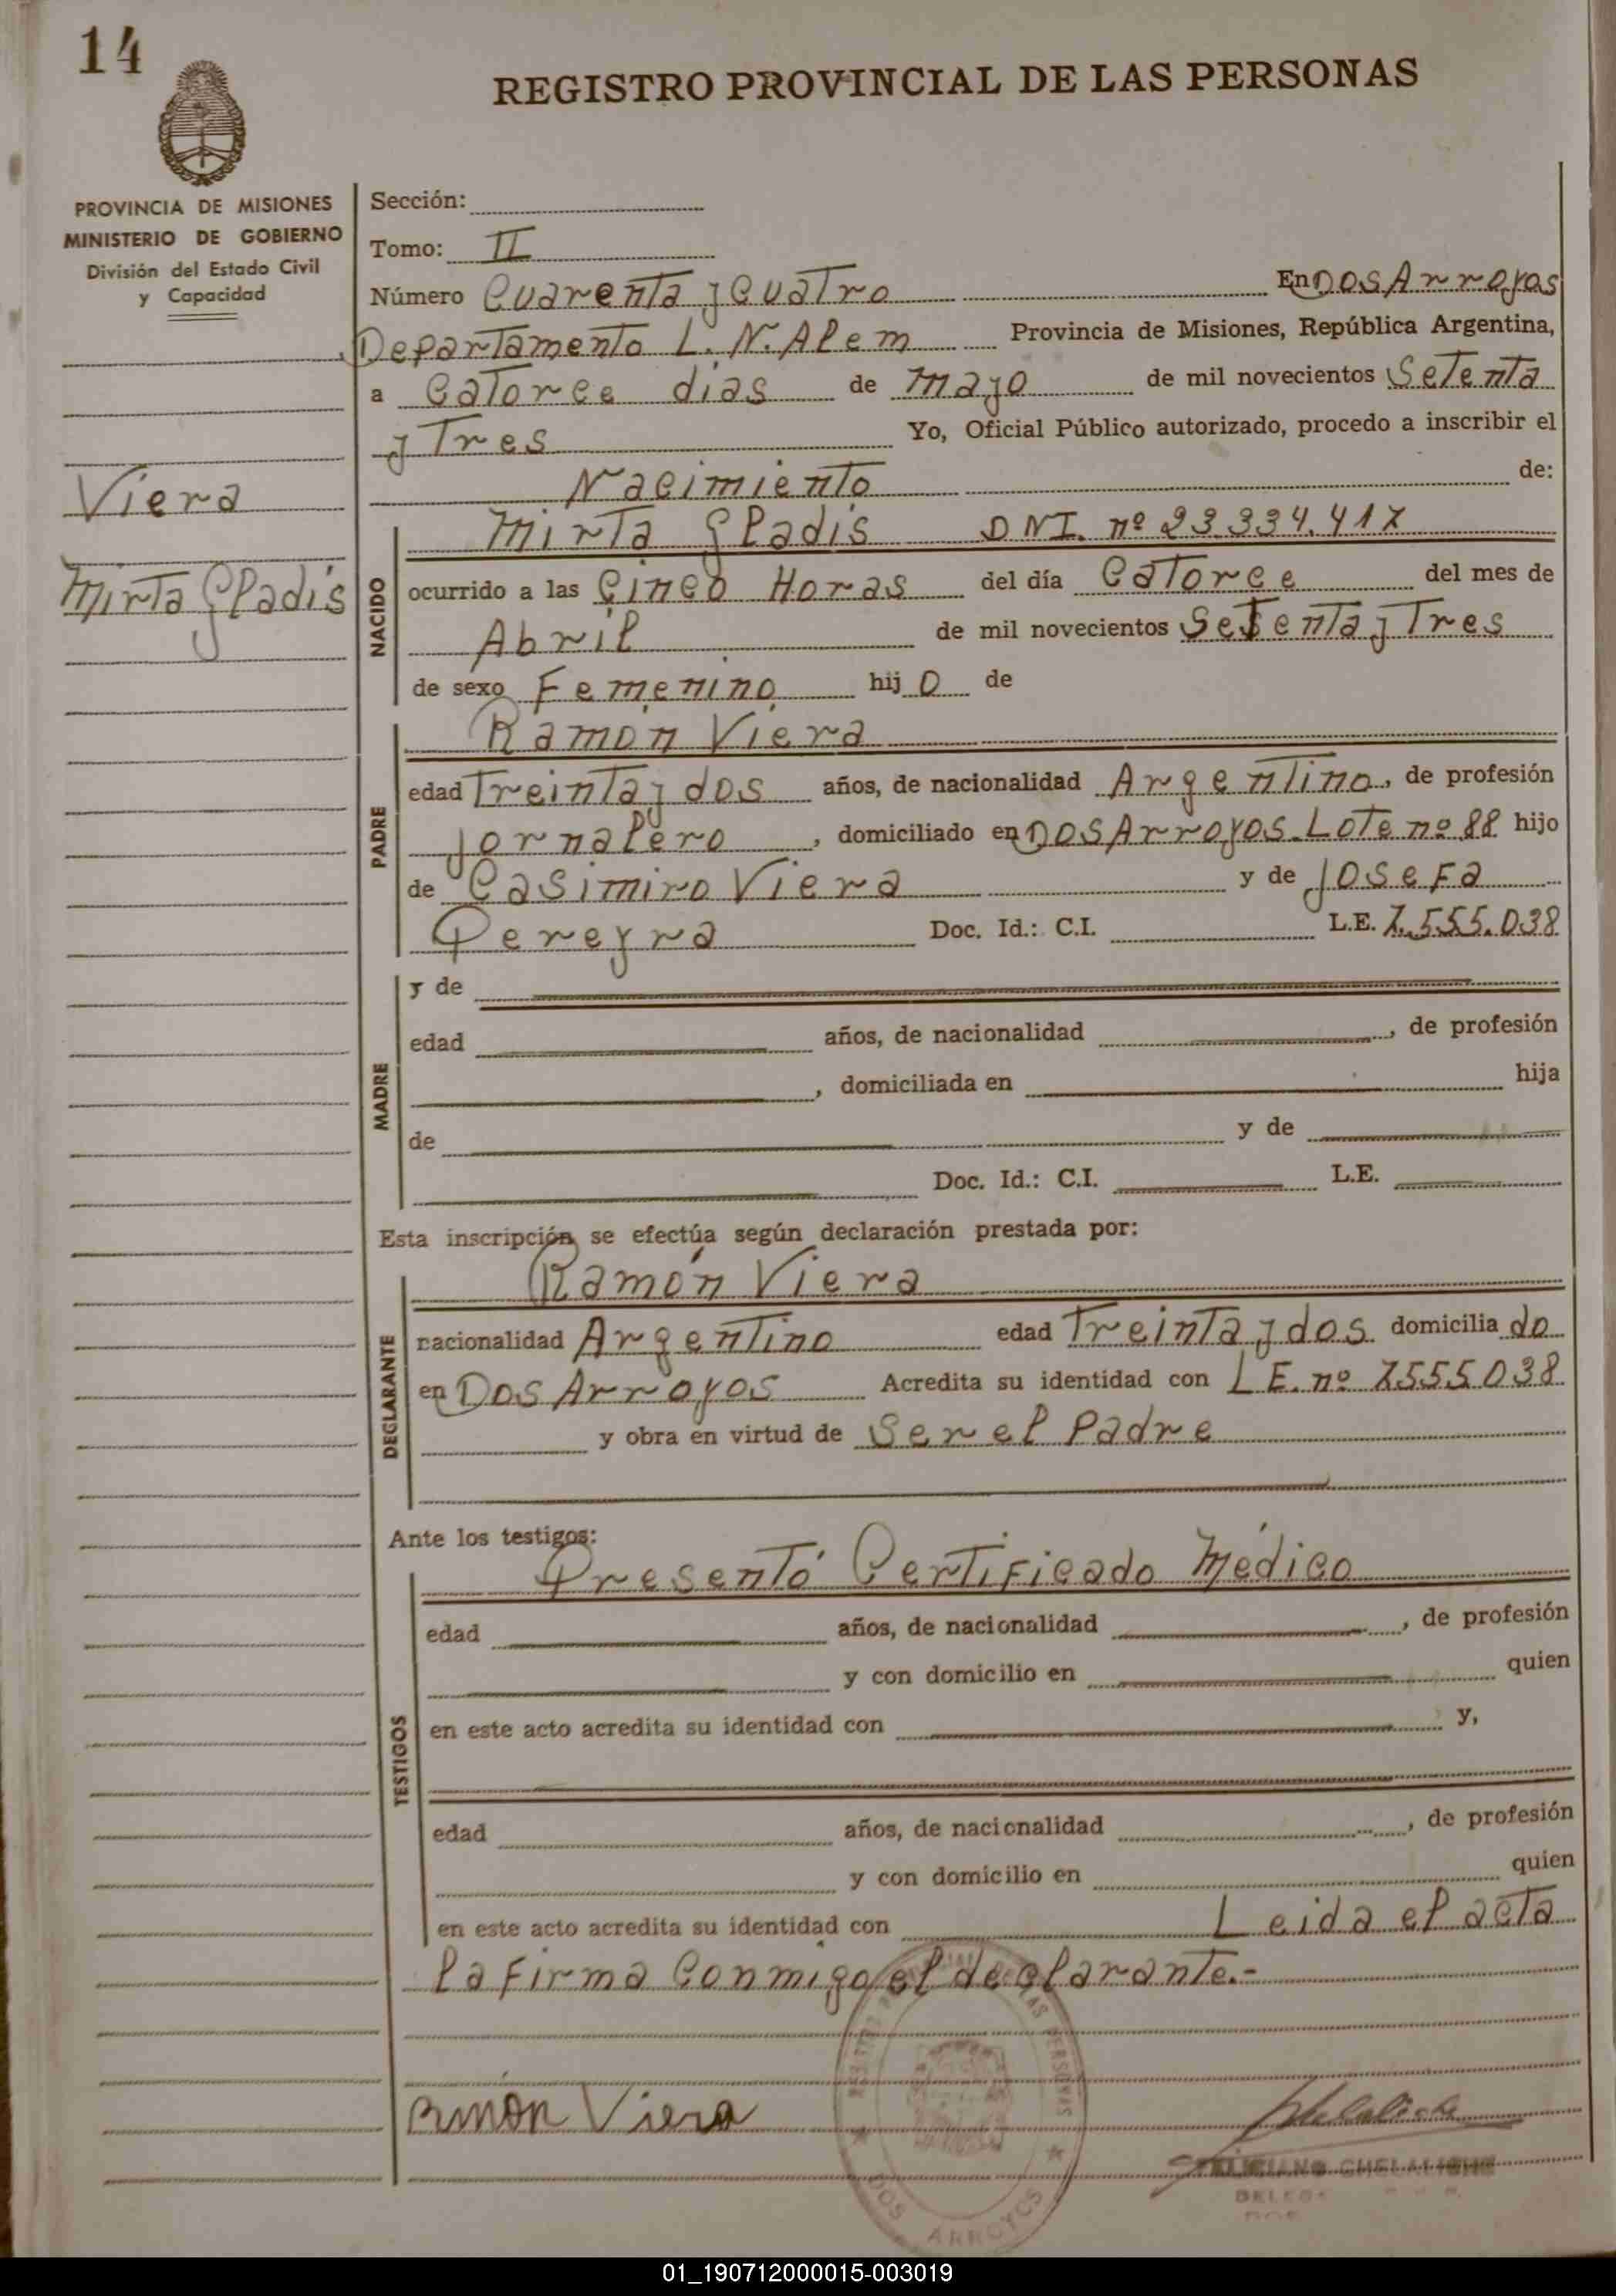 14
REGISTRO PROVINCIAL DE LAS PERSONAS
PROVINCIA DE MISIONES
MINISTERIO DE GOBIERNO
División del Estado Civil
y Capacidad
Viera
Mirta Gladis
Sección:
Tomo: II
Número Cuarenta y Cuatro En Dos Arroyos
Departamento L. N. Alem Provincia de Misiones, República Argentina,
a Catorce dias de mayo de mil novecientos Setenta
y Tres Yo, Oficial Público autorizado, procedo a inscribir el
Nacimiento de:
NACIDO
Mirta Gladis DNI. nº 23.334.417
ocurrido a las Cinco Horas del día Catorce del mes de
Abril de mil novecientos Setenta y Tres
de sexo Femenino hij o de
PADRE
Ramón Viera
edad Treinta y dos años, de nacionalidad Argentino, de profesión
Jornalero, domiciliado en Dos Arroyos. Lote nº 88 hijo
de Casimiro Viera y de Josefa
Pereyra Doc. Id.: C.I. L.E. 7.555.038
MADRE
y de
edad años, de nacionalidad , de profesión
, domiciliada en hija
de y de
Doc. Id.: C.I. L.E.
Esta inscripción se efectúa según declaración prestada por:
DECLARANTE
Ramón Viera
nacionalidad Argentino edad Treinta y dos domicilia do
en Dos Arroyos Acredita su identidad con L E. nº 7555038
y obra en virtud de Ser el Padre
Ante los testigos:
TESTIGOS
Presentó Certificado Médico
edad años, de nacionalidad , de profesión
y con domicilio en quien
en este acto acredita su identidad con y,
edad años, de nacionalidad , de profesión
y con domicilio en quien
en este acto acredita su identidad con Leida el acta
la firma Conmigo el declarante.-
Ramón Viera
FELICIANO CHELALICHE
DOS ARROYOS
01_190712000015-003019